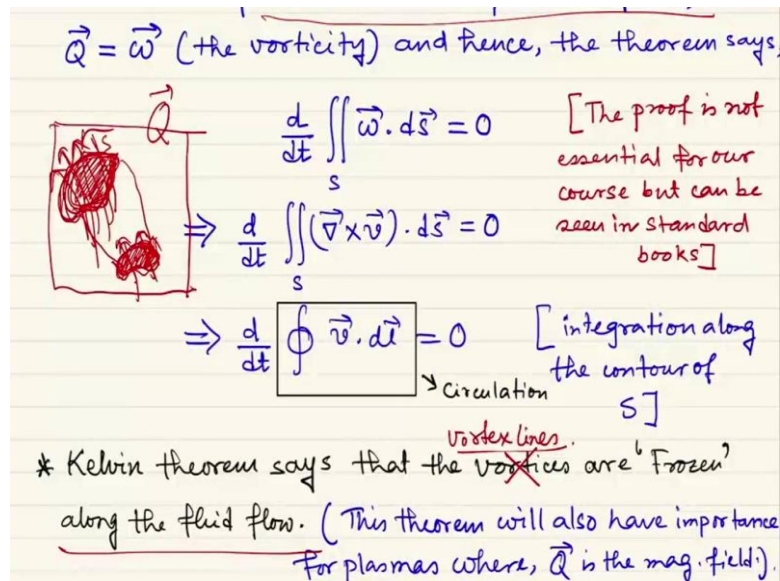 Q⃗ = ω⃗ (the vorticity) and hence, the theorem says,
Q⃗
d/dt ∬_S ω⃗ . ds⃗ = 0
[The proof is not
essential for our
course but can be
seen in standard
books]
⇒ d/dt ∬_S (∇⃗ × v⃗) . ds⃗ = 0
⇒ d/dt ∮ v⃗ . dl⃗ = 0
[integration along
the contour of
S]
↘ Circulation
vortex lines.
* Kelvin theorem says that the vortices are 'Frozen'
along the fluid flow. (This theorem will also have importance
for plasmas where, Q⃗ is the mag. field).